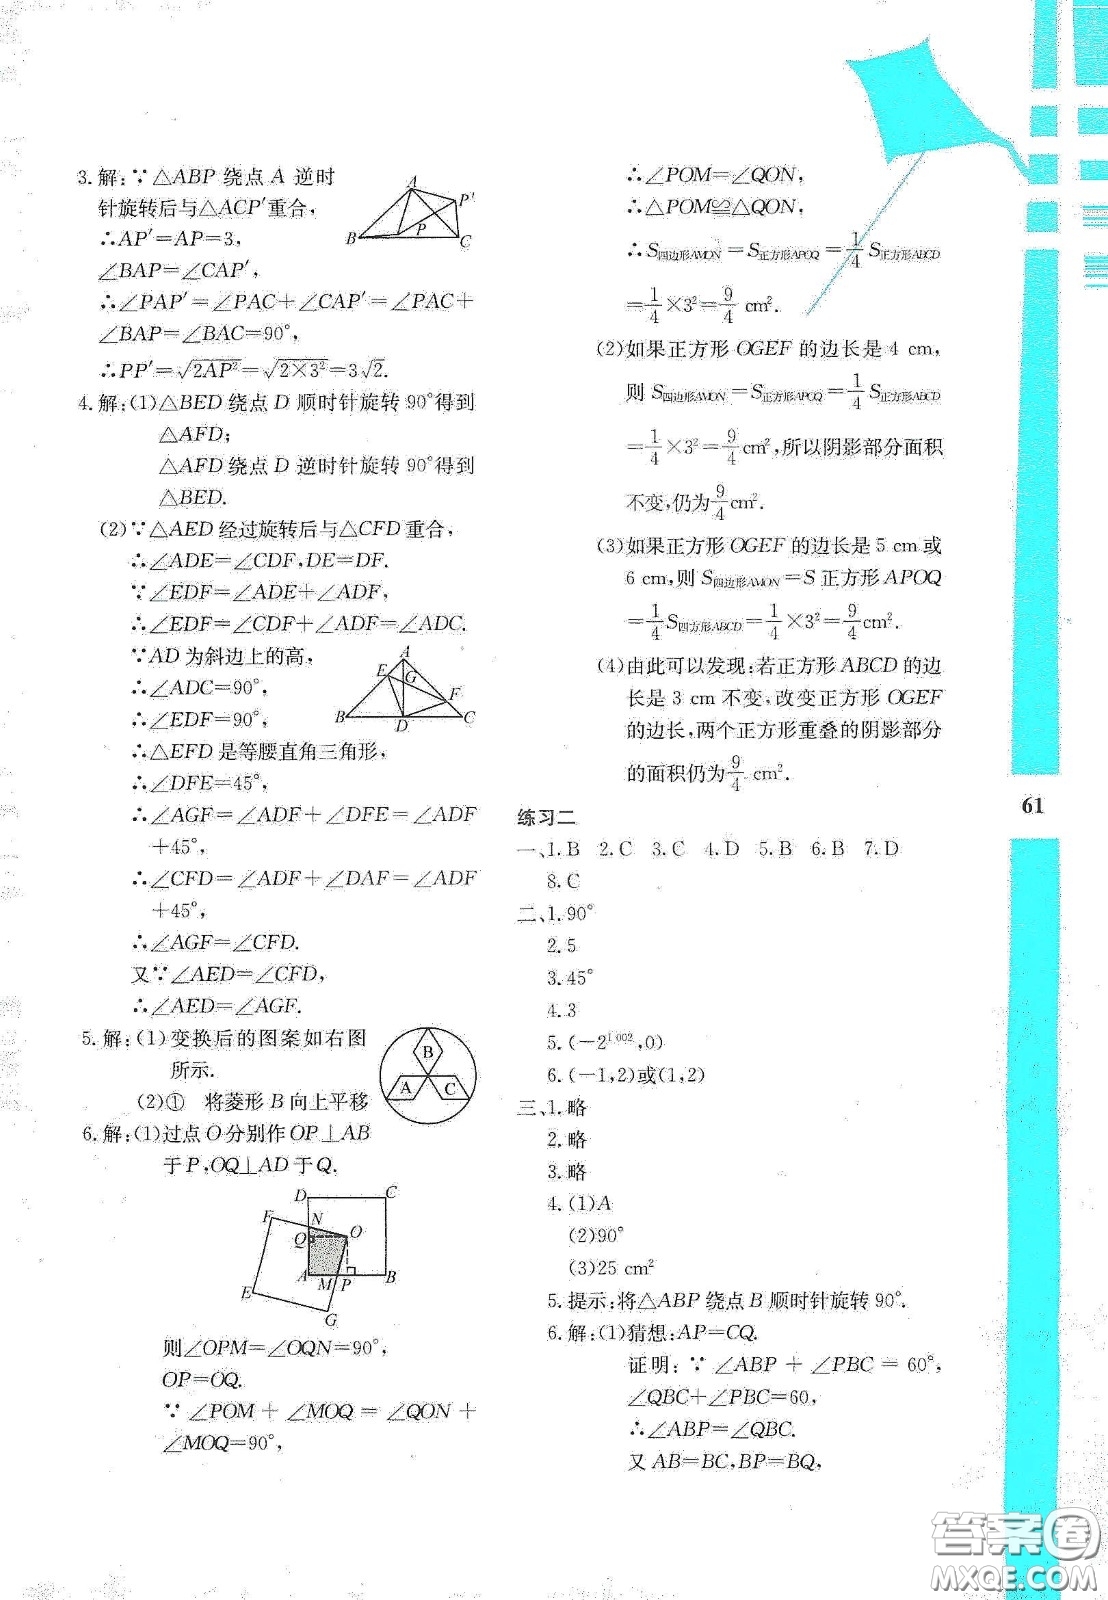 3.解:∵△ABP 绕点 A 逆时
针旋转后与△ACP′重合,
∴AP′=AP=3,
∠BAP=∠CAP′,
∴∠PAP′=∠PAC+∠CAP′=∠PAC+
∠BAP=∠BAC=90°,
∴PP′=√2AP²=√2×3²=3√2.
A
P′
P
B
C
4.解:(1)△BED 绕点 D 顺时针旋转 90°得到
△AFD;
△AFD 绕点 D 逆时针旋转 90°得到
△BED.
(2)∵△AED 经过旋转后与△CFD 重合,
∴∠ADE=∠CDF,DE=DF.
∵∠EDF=∠ADE+∠ADF,
∴∠EDF=∠CDF+∠ADF=∠ADC.
∵AD 为斜边上的高,
∴∠ADC=90°,
∴∠EDF=90°,
A
E
G
F
B
D
C
∴△EFD 是等腰直角三角形,
∴∠DFE=45°,
∴∠AGF=∠ADF+∠DFE=∠ADF
+45°,
∴∠CFD=∠ADF+∠DAF=∠ADF
+45°,
∴∠AGF=∠CFD.
又∵∠AED=∠CFD,
∴∠AED=∠AGF.
5.解:(1)变换后的图案如右图
所示.
(2)① 将菱形 B 向上平移
B
A
C
6.解:(1)过点 O 分别作 OP⊥AB
于 P,OQ⊥AD 于 Q.
D
C
F
N
Q
O
A
M
P
B
E
G
则∠OPM=∠OQN=90°,
OP=OQ.
∵ ∠POM + ∠MOQ = ∠QON +
∠MOQ=90°,
∴∠POM=∠QON,
∴△POM≌△QON,
∴S四边形AMON=S正方形APOQ=1/4 S正方形ABCD
=1/4×3²=9/4 cm².
(2)如果正方形 OGEF 的边长是 4 cm,
则 S四边形AMON=S正方形APOQ=1/4 S正方形ABCD
=1/4×3²=9/4cm²,所以阴影部分面积
不变,仍为9/4cm².
(3)如果正方形 OGEF 的边长是 5 cm 或
6 cm,则 S四边形AMON=S 正方形 APOQ
=1/4S四方形ABCD=1/4×3²=9/4cm².
(4)由此可以发现:若正方形 ABCD 的边
长是 3 cm 不变,改变正方形 OGEF
的边长,两个正方形重叠的阴影部分
的面积仍为9/4 cm².
练习二
一、1.B 2.C 3.C 4.D 5.B 6.B 7.D
8.C
二、1.90°
2.5
3.45°
4.3
5.(−2^1 002,0)
6.(−1,2)或(1,2)
三、1.略
2.略
3.略
4.(1)A
(2)90°
(3)25 cm²
5.提示:将△ABP 绕点 B 顺时针旋转 90°.
6.解:(1)猜想:AP=CQ.
证明: ∵ ∠ABP + ∠PBC = 60°,
∠QBC+∠PBC=60,
∴∠ABP=∠QBC.
又 AB=BC,BP=BQ,
61
答案圈
MXQE.COM